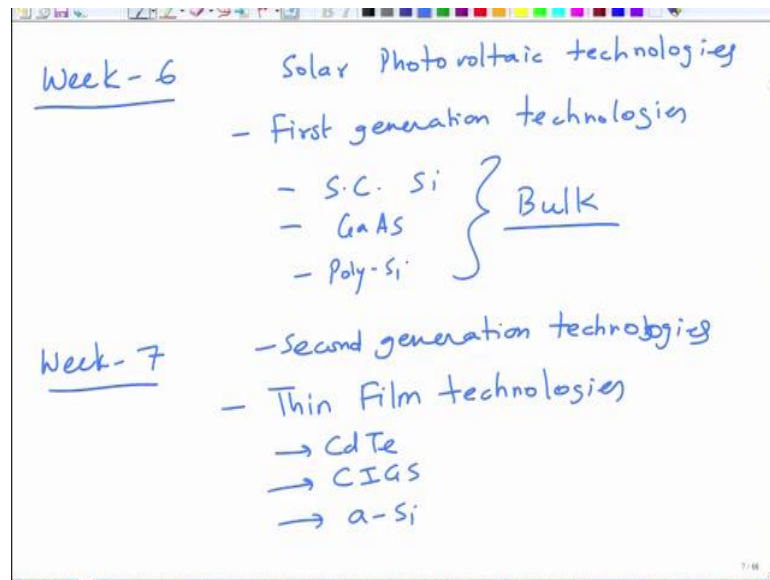 Week-6 Solar Photovoltaic technologies
- First generation technologies
- S.C. Si
- GaAs
- Poly-Si
} Bulk
Week-7 - Second generation technologies
- Thin Film technologies
→ CdTe
→ CIGS
→ a-Si
7/66